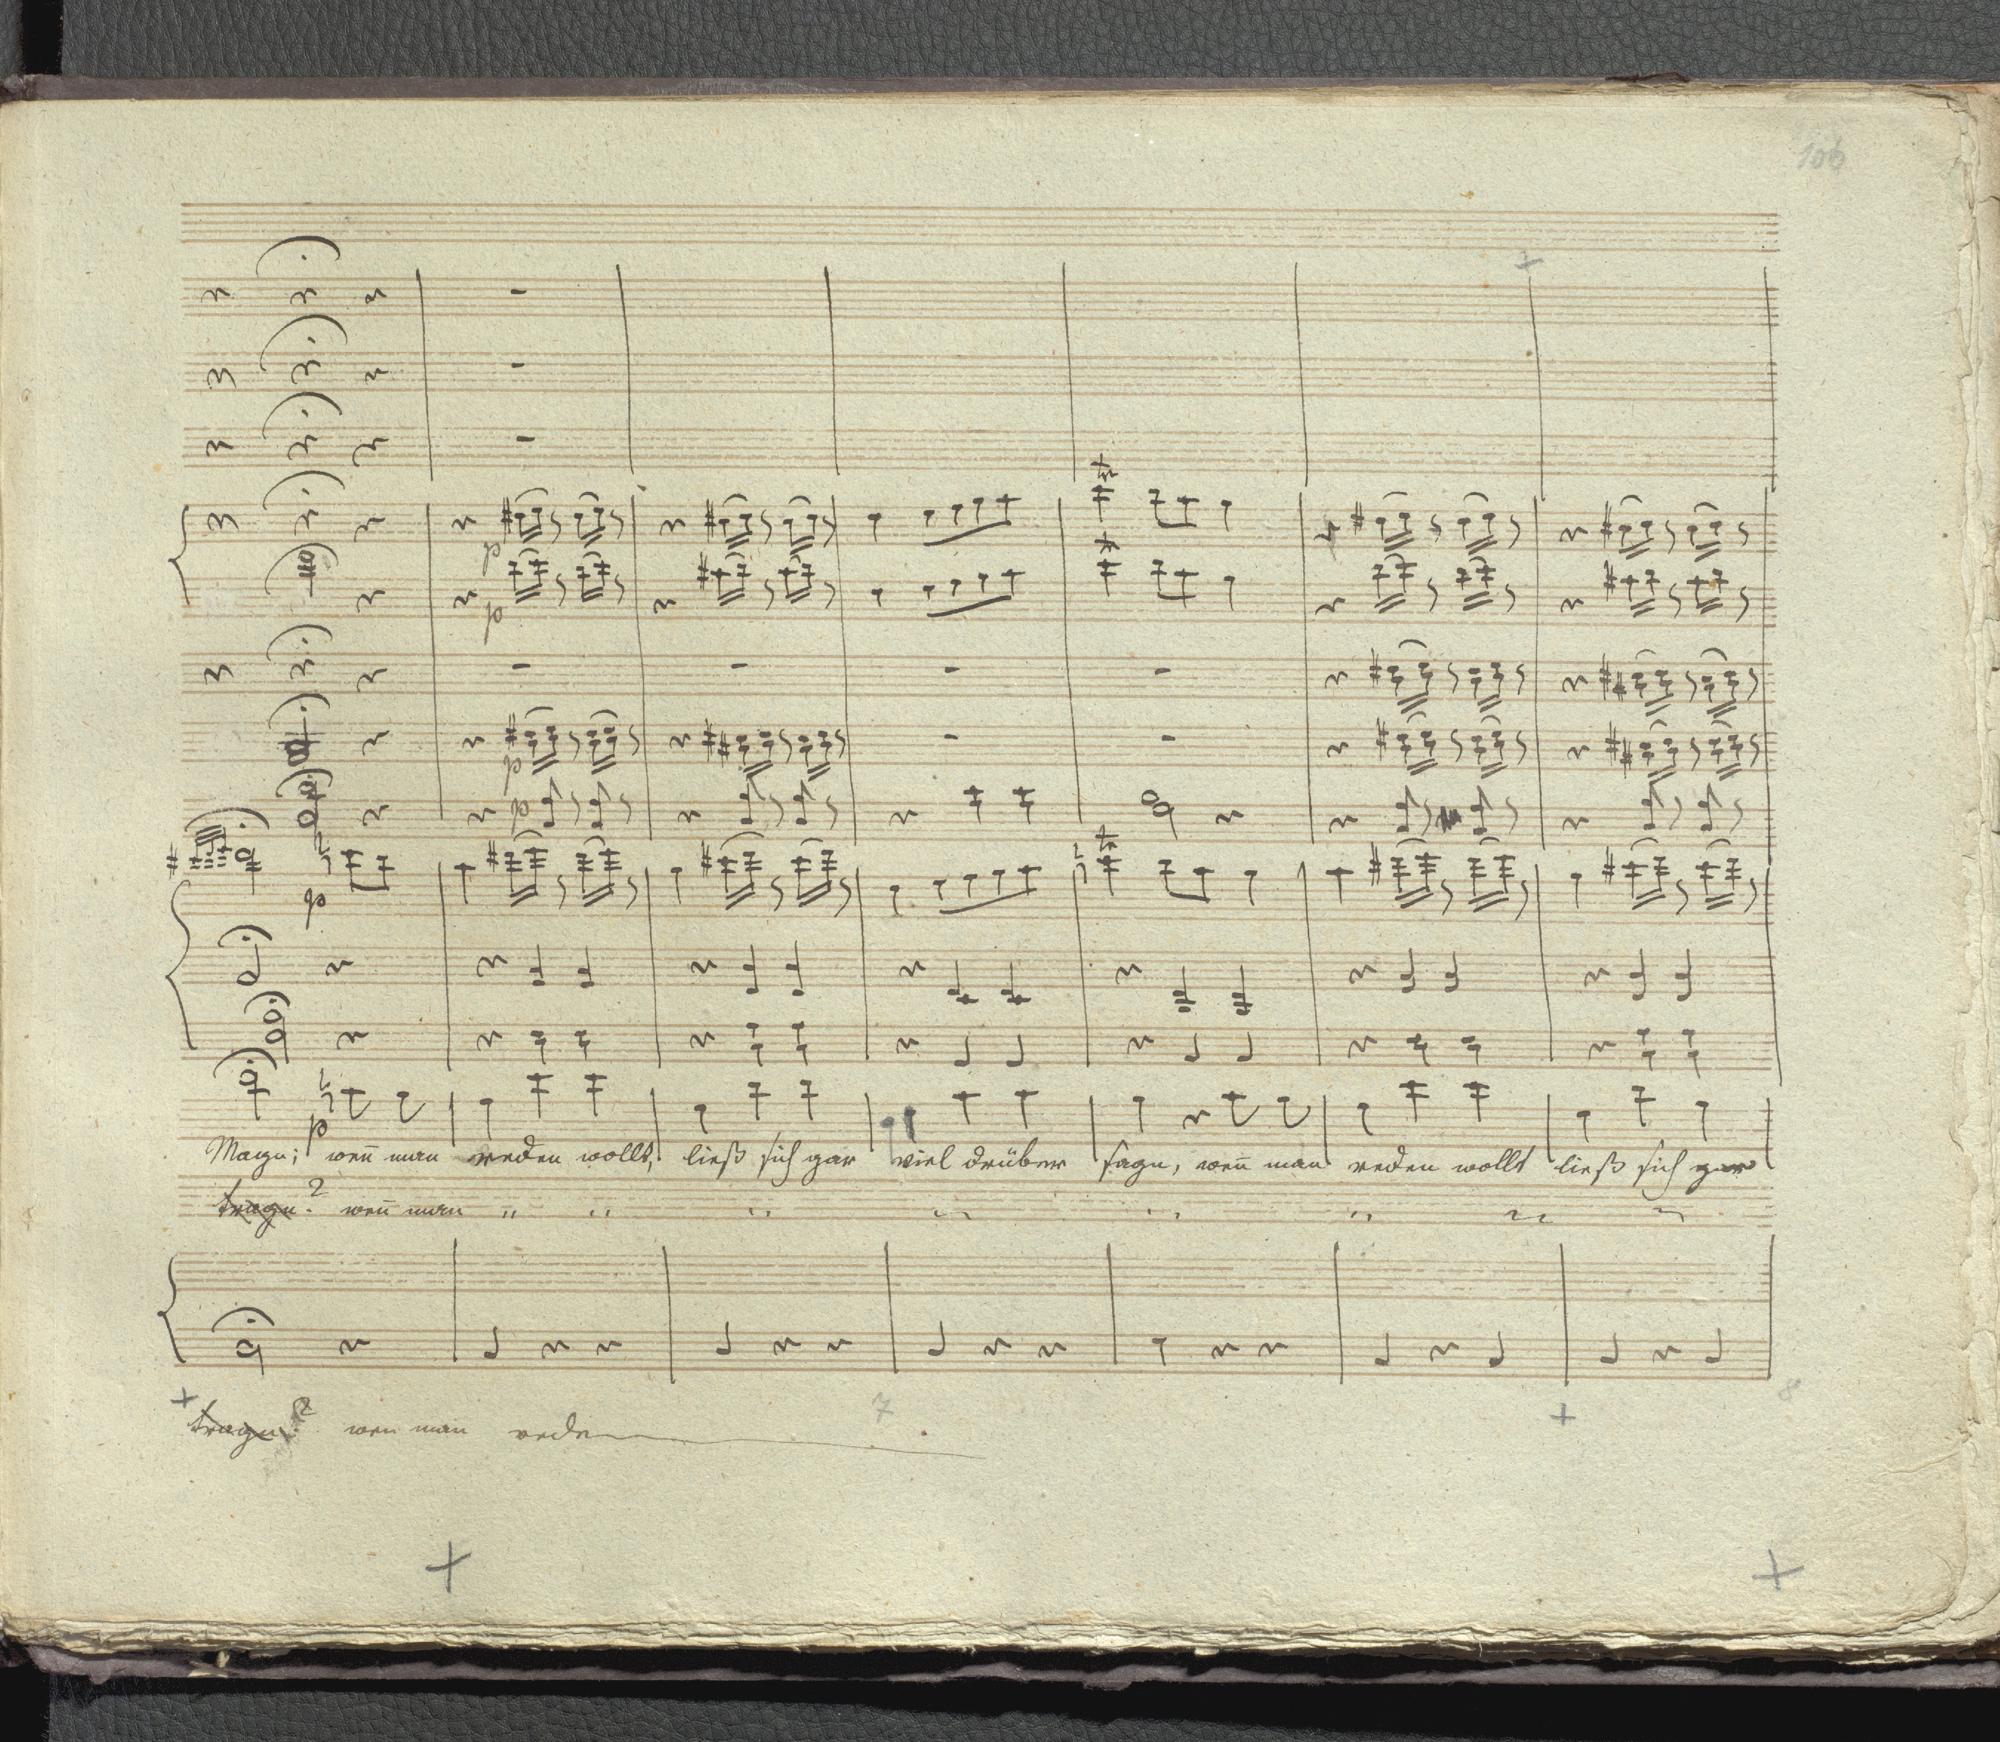 106
p
p
p
p
p
p
Magn; weñ man reden wollt, ließ sich gar viel drüber sagn, weñ man reden wollt ließ sich gar
tragn? weñ man " "
7 8
tragn? wen man rede